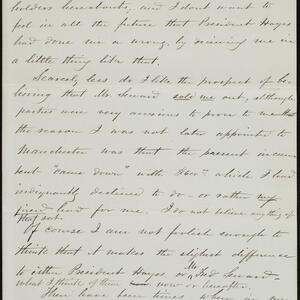 holders hereabouts, and I don't want to
feel in all the future that President Hayes
had done me a wrong, by deceiving me in
a little thing like that.
Scarcely less do I like the prospect of be-
lieving that Mr. Seward sold me out, although
parties were very anxious to prove to me that
the reason I was not later appointed to
Manchester was that the present incum-
bent "came down" with which I had
indignantly declined to do - or rather my
friend had for me. I do not believe anything of
that sort.
Of course I am not foolish enough to
think that it makes the slightest difference
to either President Hayes, or Mr. Fred Seward-
what I think of them now or hereafter.
There have been times when in my